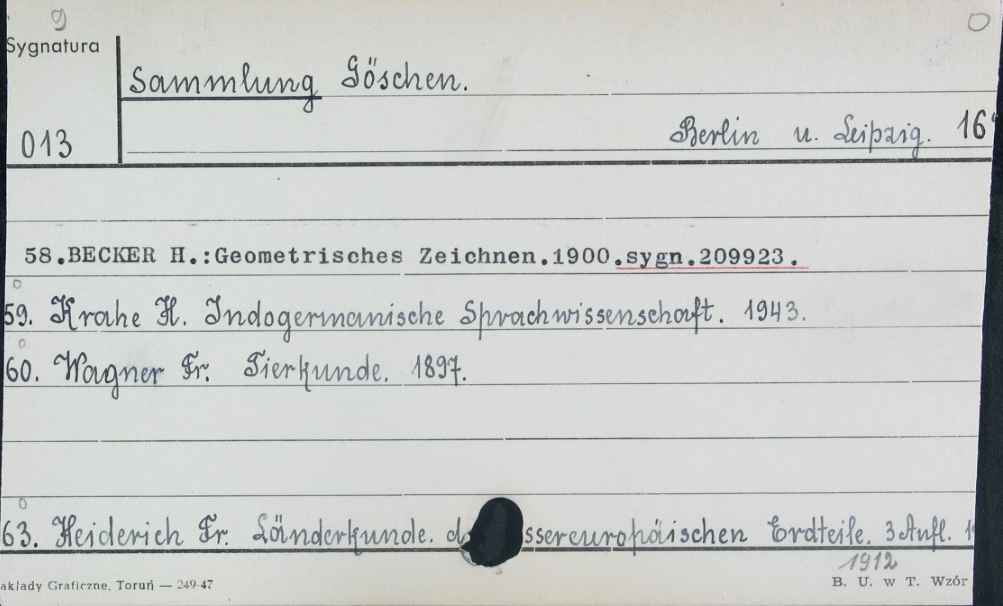 9
Sygnatura
Sammlung Göschen.
013
Berlin u. Leipzig. 16°
58.BECKER H.:Geometrisches Zeichnen.1900.sygn.209923.
59. Krahe H. Indogermanische Sprachwissenschaft. 1943.
60. Wagner Fr. Tierkunde. 1897.
63. Heiderich Fr. Länderkunde. d ssereuropäischen Erdteile. 3 Aufl.
1912
akłady Graficzne, Toruń — 249-47
B. U. w T. Wzór